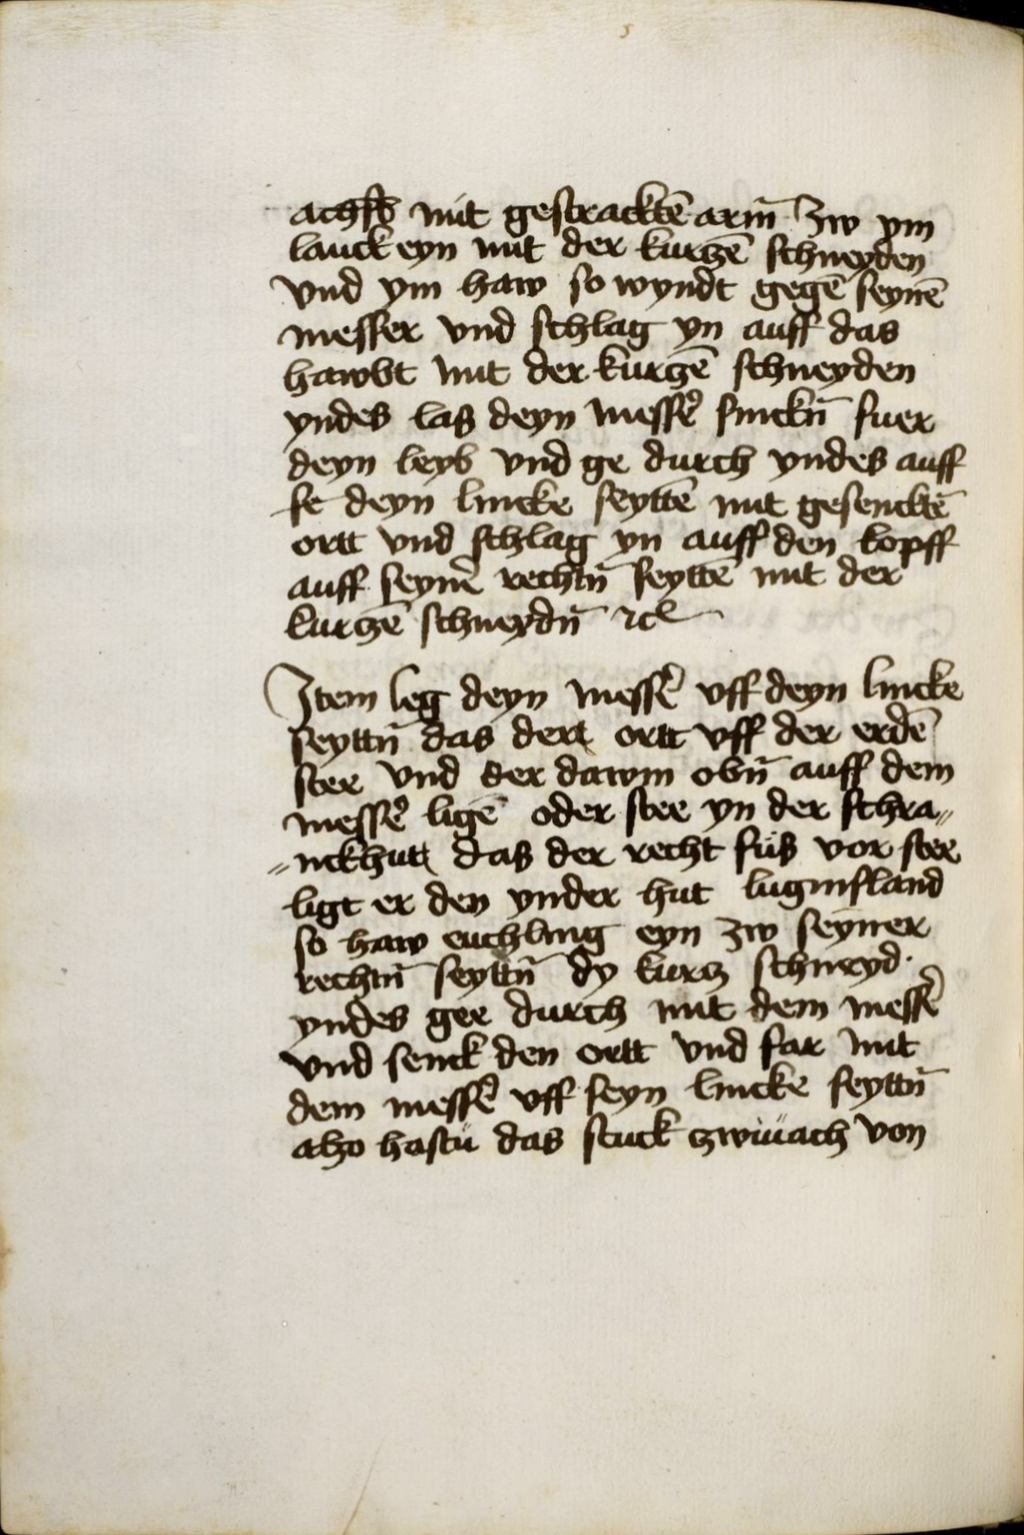 achsß mit gestracktē arm̄ zw ym
lauck eyn mit der kurczē schneyden
vnd ym haw so wyndt gegē seynē
messer vnd schlag yn auff das
hawbt mit der kurczē schneyden
yndes las deyn messer̉ sinckn̄ fuer
deyn leyb vnd ge durch yndes auff
se deyn lincke seyttē mit gesencktē
ortt vnd schlag yn auff den kopff
auff seynē rechtn̄ seyttē mit der
kurczē schneydn̄ ꝛc
Item leg deyn messer̉ vff deyn lincke
seyttn̄ das der ortt vff der erdē
stee vnd der dawm obn̄ auff dem
messer̉ ligē oder stee yn der schra„
„nckhutt das der recht fůs vor stee
ligt er den ynder hut luginsland
so haw euchling eyn zw seyner
rechtn̄ seyttn̄ dy kurcz schneyd
yndes gee durch mit dem messer̉
vnd senck den ortt vnd far mit
dem messer̉ vff seyn lincke seyttn̄
alzo hastu das stuck zwiuach von